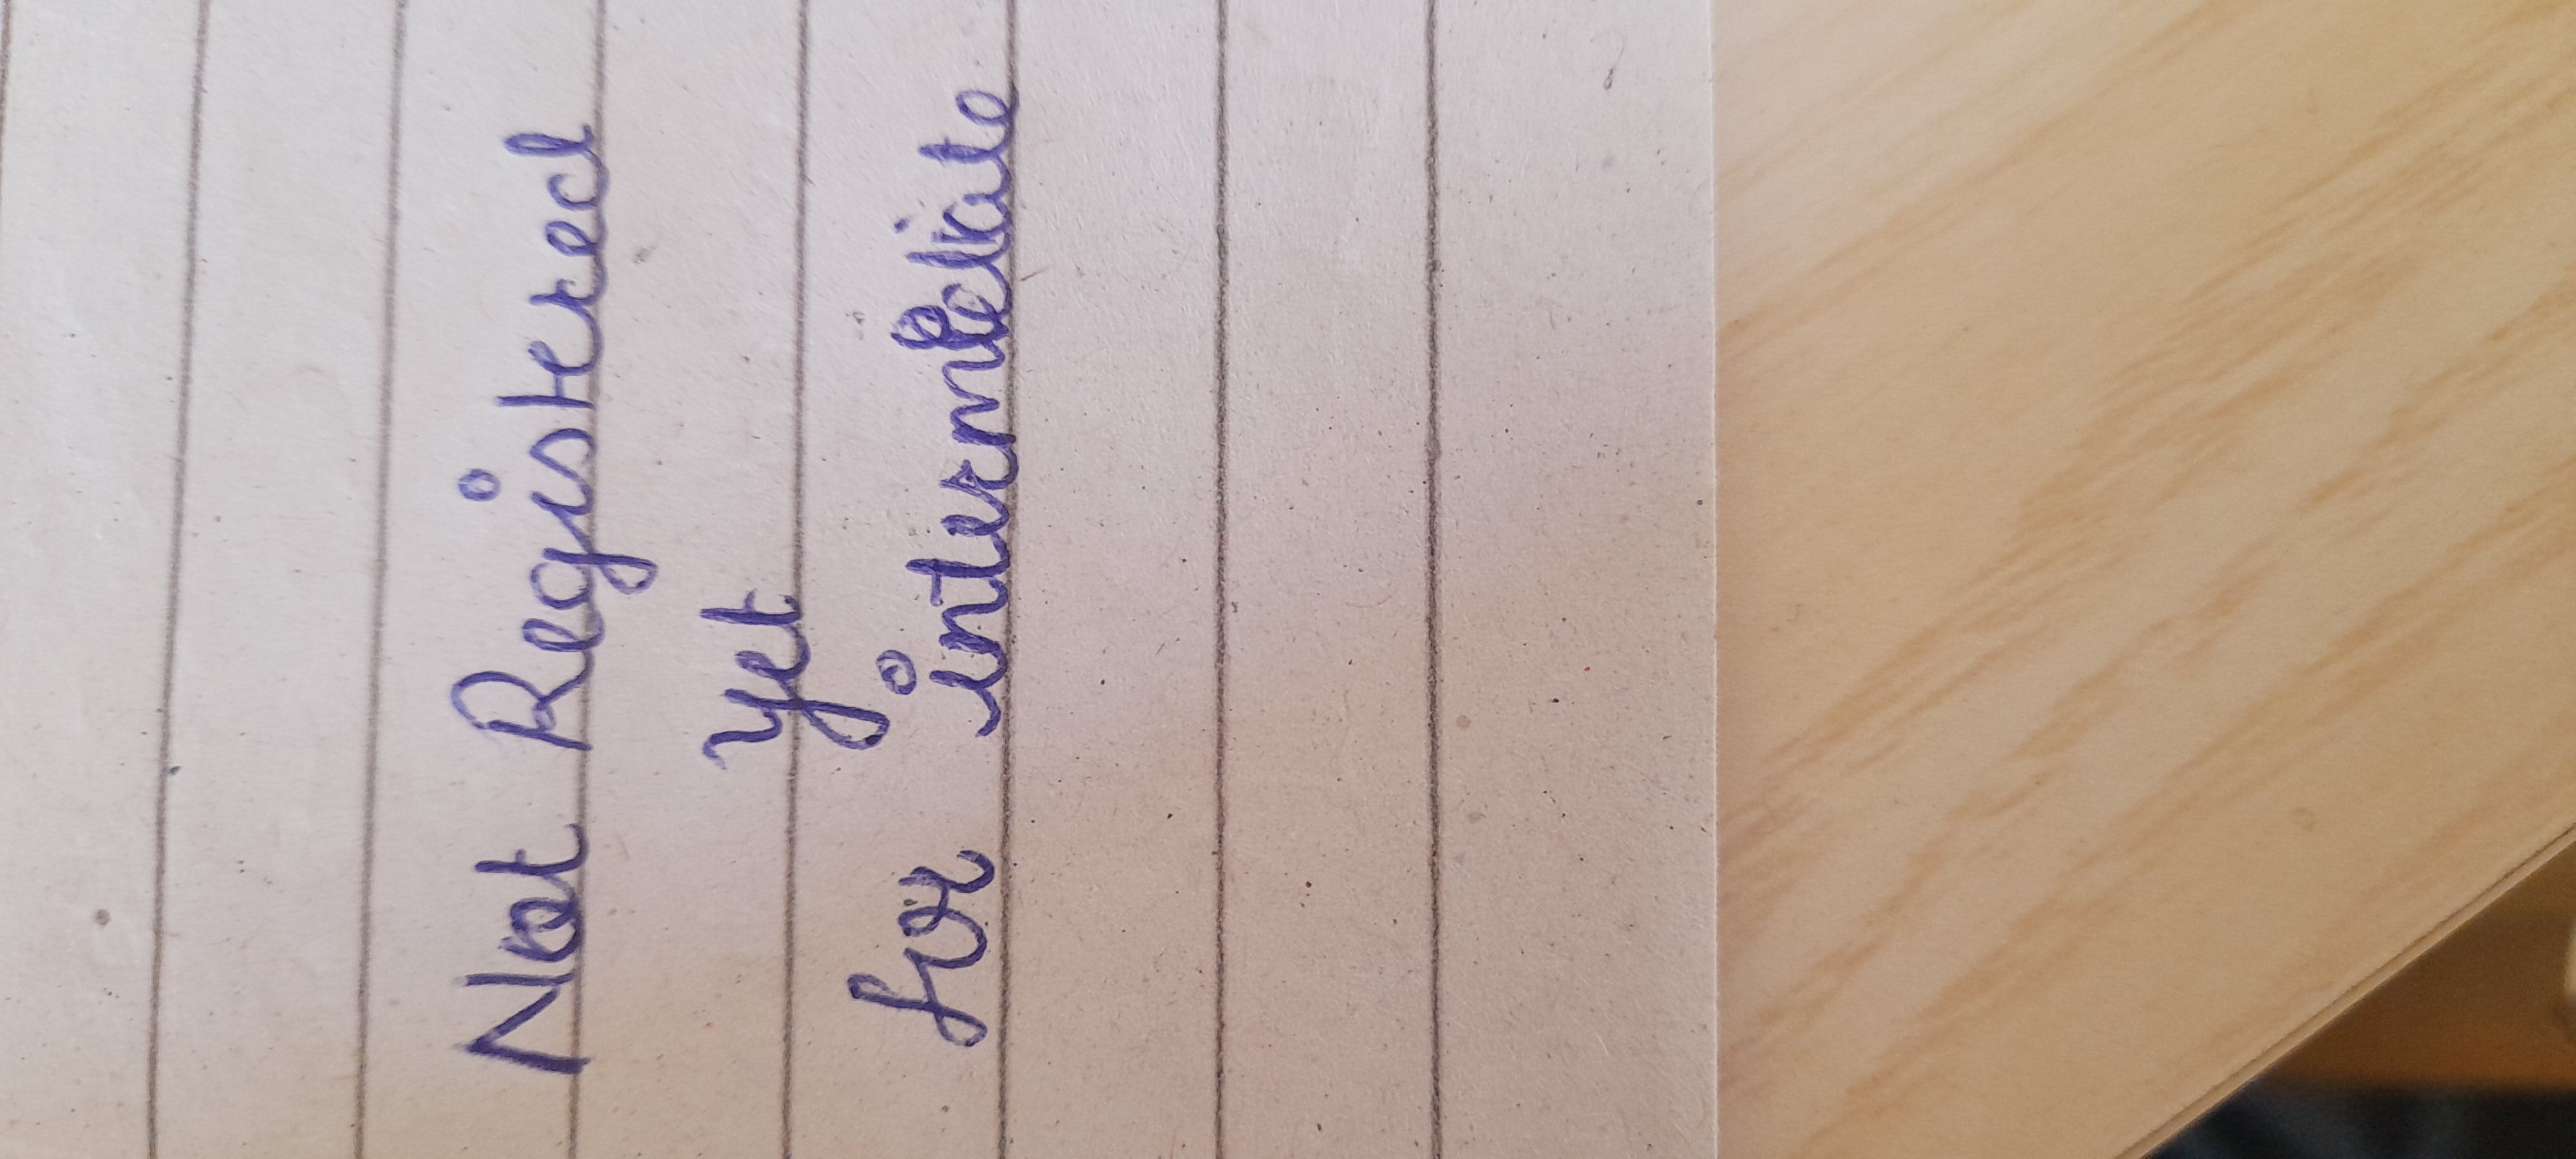 Not Registered
yet
for intermediate